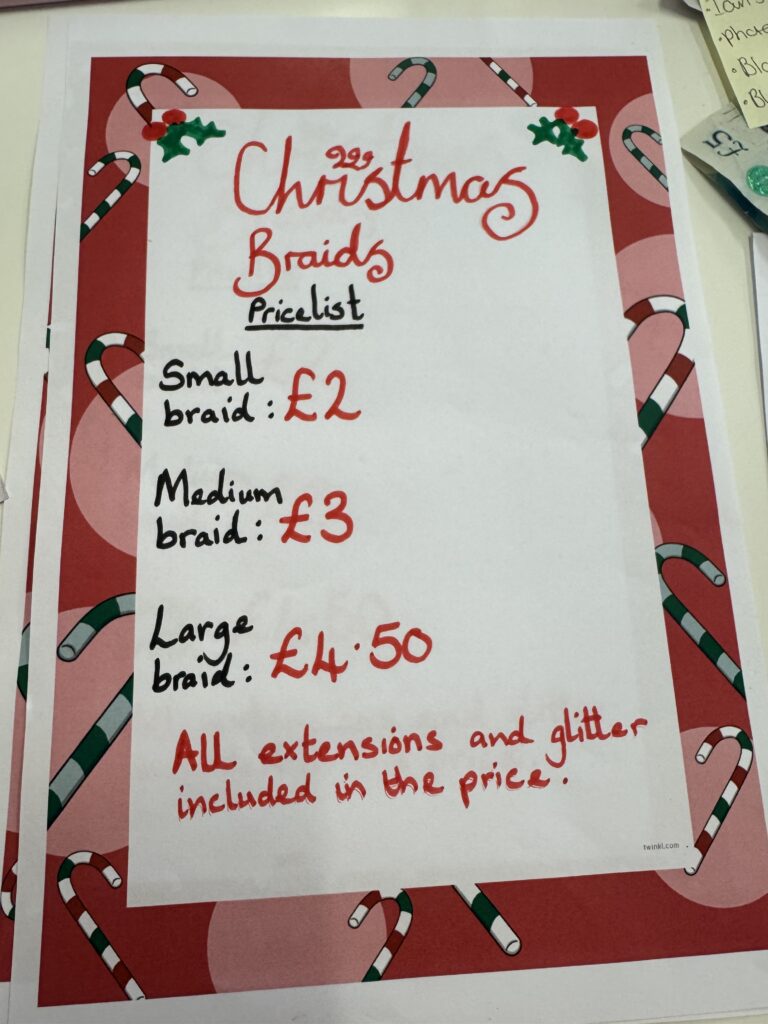 Christmas
Braids
Pricelist
Small
braid: £2
Medium
braid: £3
Large
braid: £4.50
All extensions and glitter
included in the price.
twinkl.com
£2